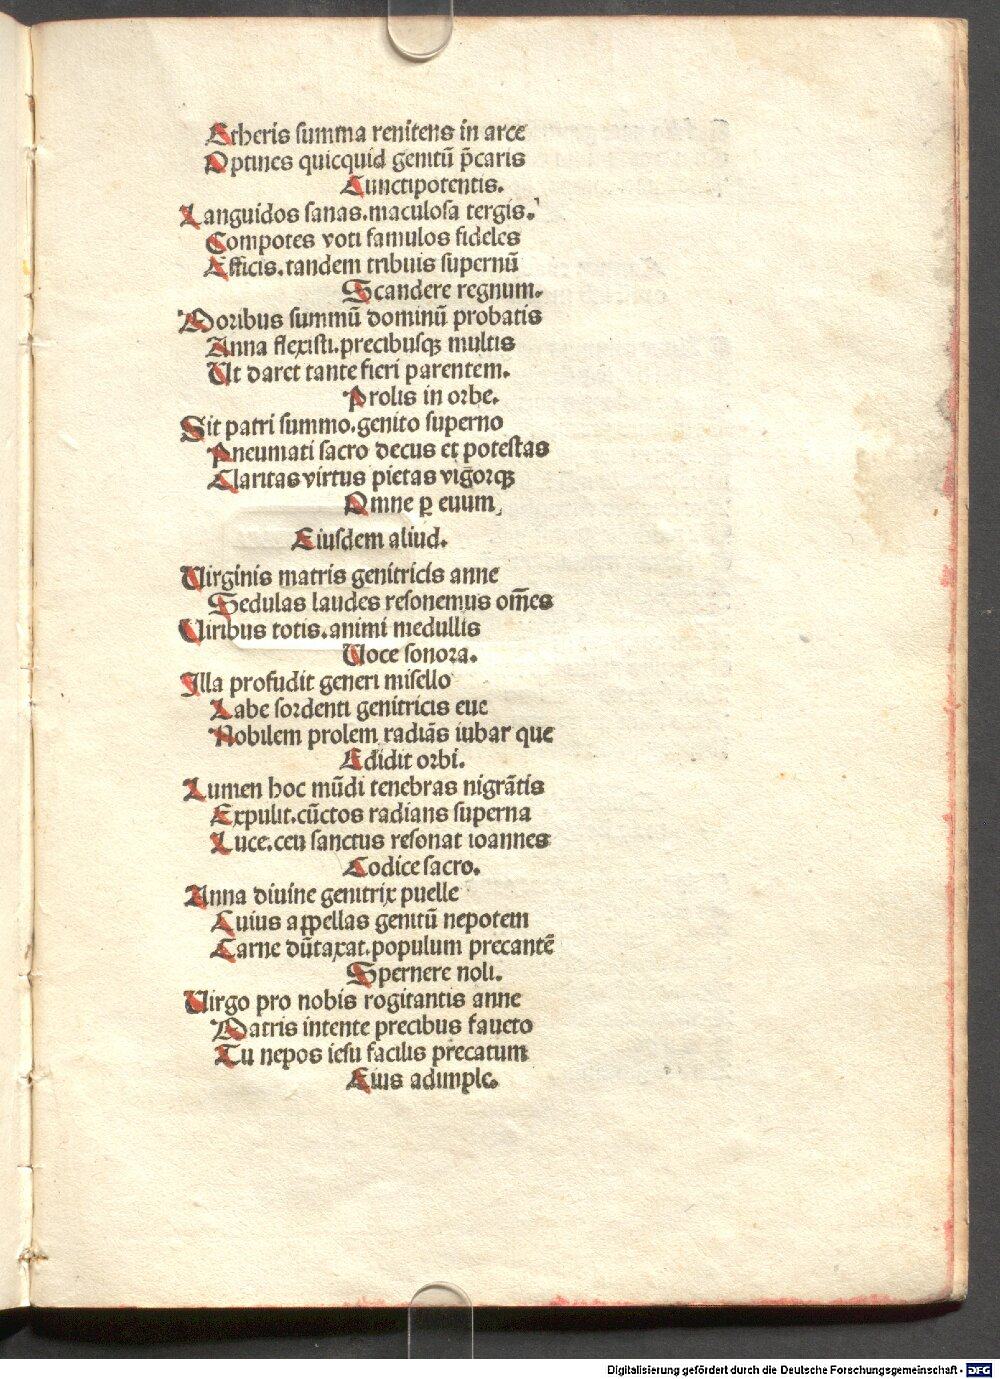 Etheris summa renitens in arce
Optines quicquid genitū p̄caris
Cunctipotentis.
Languidos sanas.maculosa tergis.
Compotes voti famulos fideles
Efficis.tandem tribuis supernū
Scandere regnum.
Moribus summū dominū probatis
Anna flexisti.precibusqꝫ multis
Ut daret tante fieri parentem.
Prolis in orbe.
Sit patri summo.genito superno
Pneumati sacro decus et potestas
Claritas virtus pietas vigorqꝫ
Omne ꝑ euum
Eiusdem aliud.
Virginis matris genitricis anne
Sedulas laudes resonemus om̄es
Viribus totis.animi medullis
Voce sonora.
Illa profudit generi misello
Labe sordenti genitricis eue
Nobilem prolem radiās iubar que
Edidit orbi.
Lumen hoc mūdi tenebras nigrātis
Expulit.cūctos radians superna
Luce.ceu sanctus resonat ioannes
Codice sacro.
Anna diuine genitrix puelle
Cuius appellas genitū nepotem
Carne dūtaxat.populum precantē
Spernere noli.
Virgo pro nobis rogitantis anne
Matris intente precibus faueto
Tu nepos iesu facilis precatum
Eius adimple.
Digitalisierung gefördert durch die Deutsche Forschungsgemeinschaft - DFG